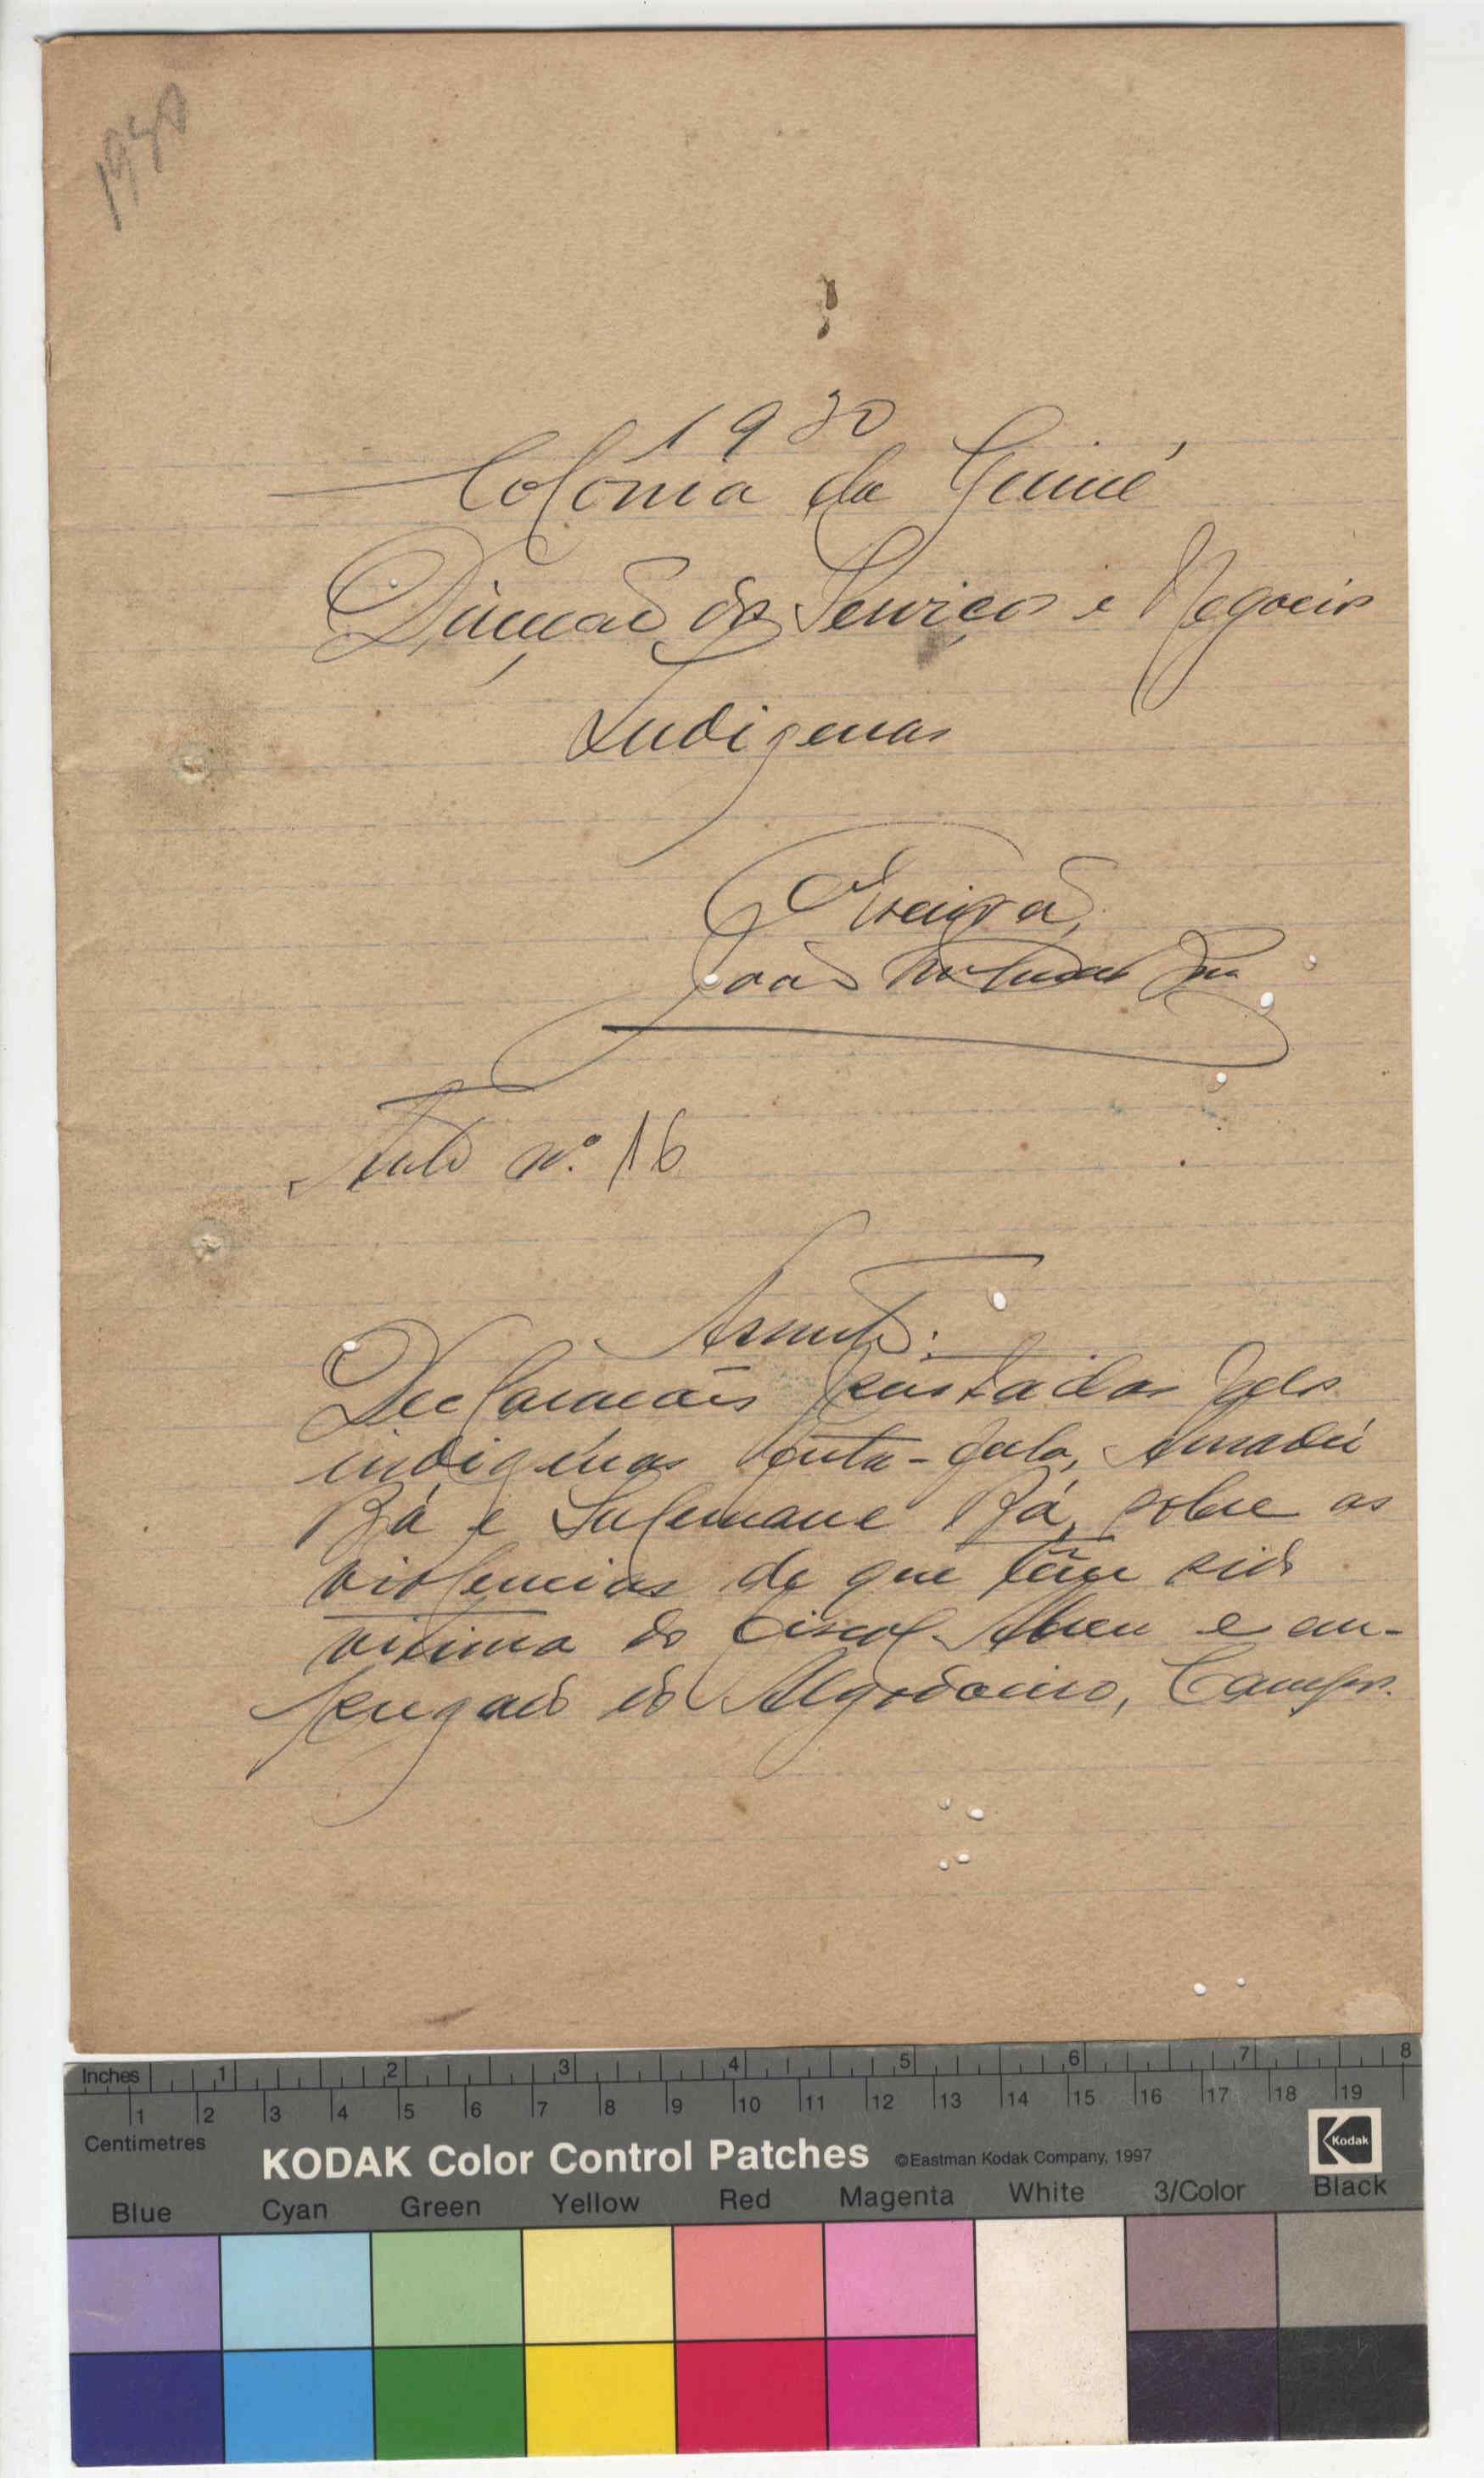 1930
1930
Colónia da Guiné
Direcção dos Serviços e Negocios
Indigenas
Escrivão,
João
Auto nº. 16
Assunto:
Declaracões prestadas pelos
indigenas Fouta-Jalo, Amadú
Bá e Sulemane Bá, sobre as
violencias de que têm sido
vitima do fiscal Abreu e em-
pregado do Algodoeiro, Campos.
Inches 1 2 3 4 5 6 7 8
1 2 3 4 5 6 7 8 9 10 11 12 13 14 15 16 17 18 19
Centimetres
KODAK Color Control Patches ©Eastman Kodak Company, 1997 Kodak
Blue Cyan Green Yellow Red Magenta White 3/Color Black